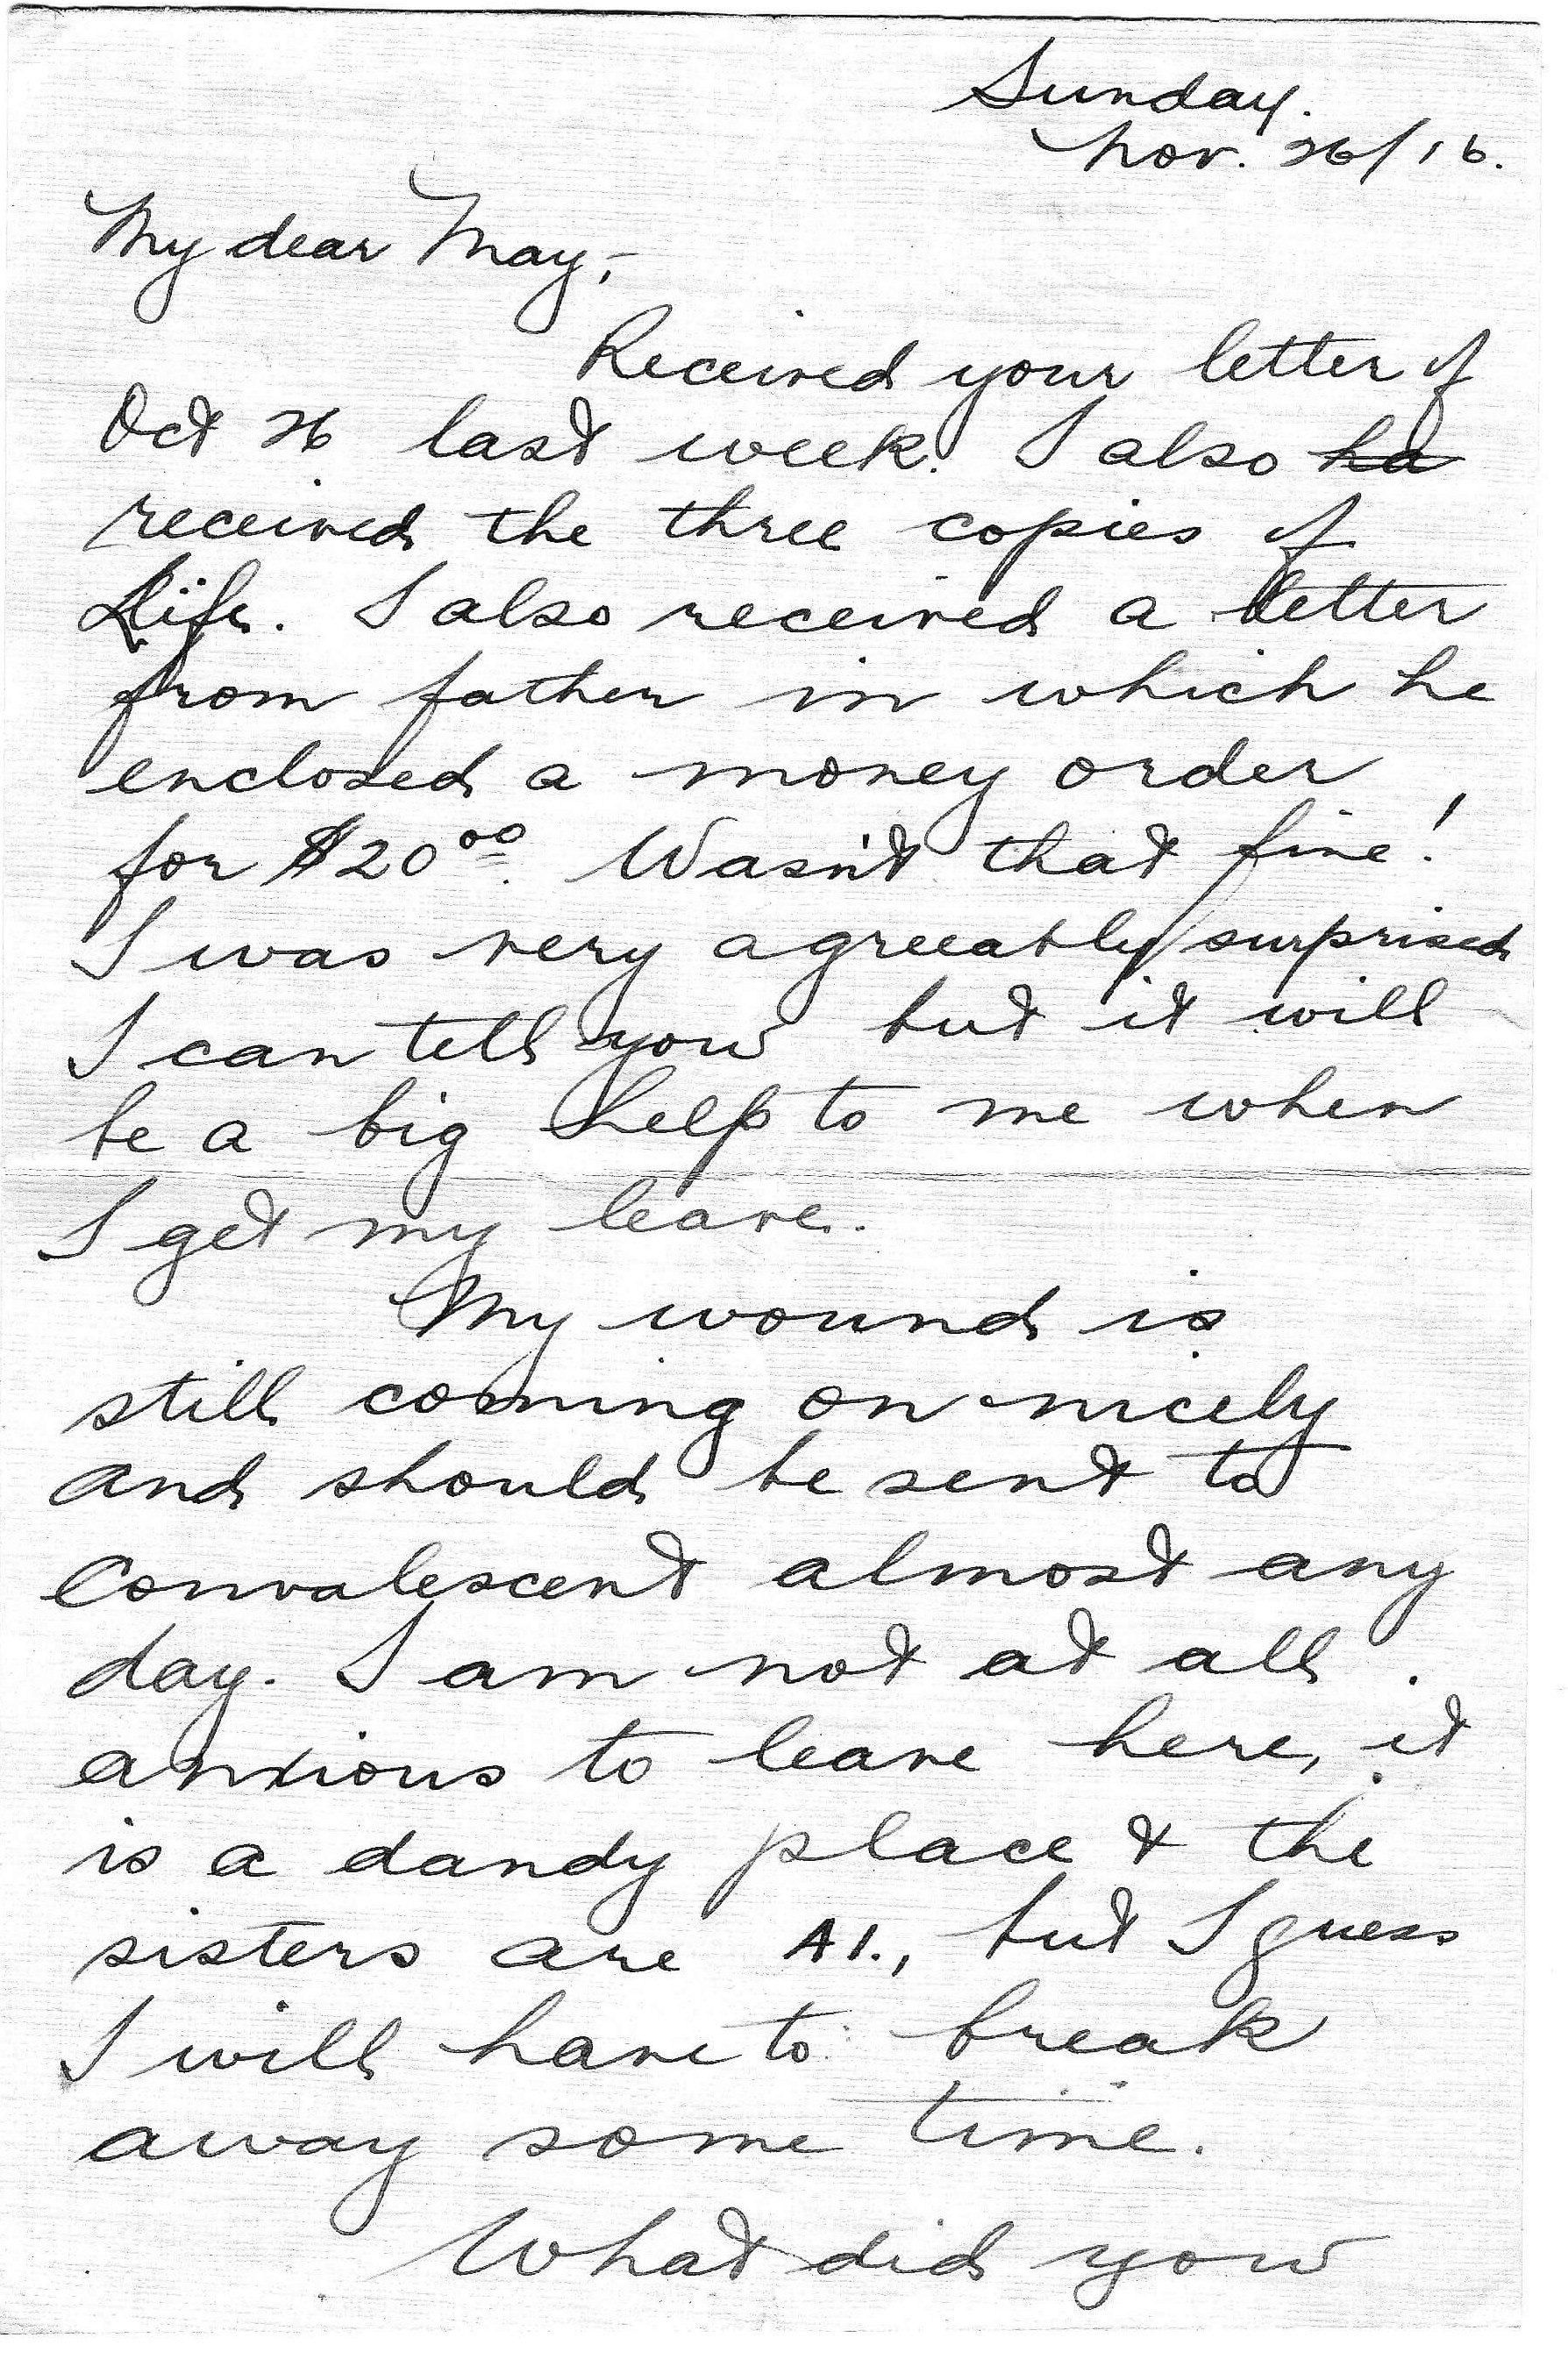 Sunday.
Nov. 26/16.
My dear May,-
Received your letter of
Oct 26 last week. I also ha
received the three copies of
Life. I also received a letter
from father in which he
enclosed a money order
for $20.00. Wasn't that fine!
I was very agreeably surprised
I can tell you but it will
be a big help to me when
I get my leave.
My wound is
still coming on nicely
and should be sent to
Convalescent almost any
day. I am not at all
anxious to leave here, it
is a dandy place & the
sisters are A1., but I guess
I will have to break
away some time.
What did you